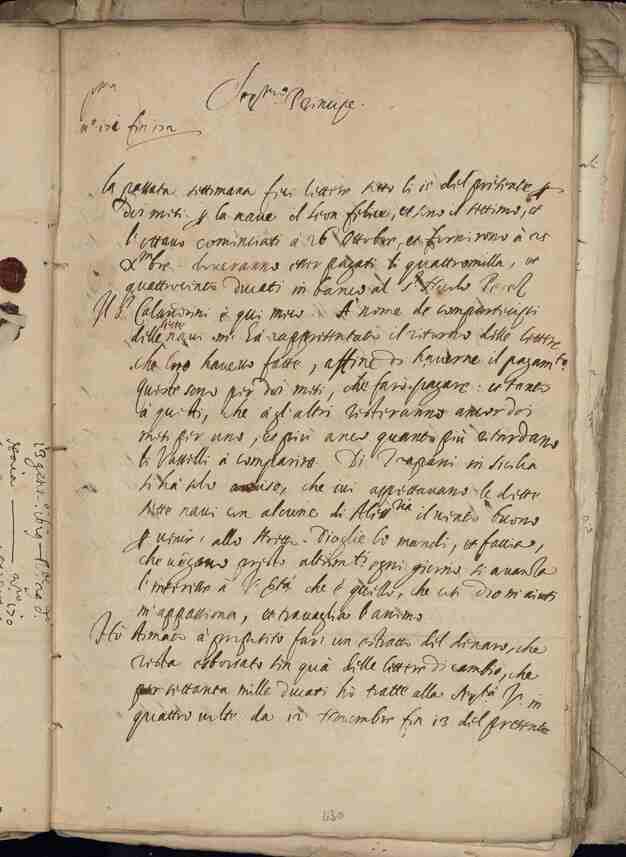 p.ma
n.o 121 fin 122
Ser.mo Principe.
La passata settimana feci lettere sotto li 12 del presente p
doi mesi p la nave il Leon felice, et sino il settimo, et
l'ottavo cominciati à 26 Ottobre, et fornirono à 25
Xmbre. doveranno esser pagati li quattromilla, et
quattrocento ducati in banco al S.r
Il S.r Calandrini è qui meco. A nome de compartecipi
delle sette navi mi hà rappresentato il ritorno delle lettere
che loro havevo fatte, affine di haverne il pagam.to
queste sono per doi mesi, che farò pagare: et tanto
à questi, che à gli altri resteranno ancor doi
mesi per uno, et più anco quanto più ritardano
li Vasselli à comparire. Di Trapani in Sicilia
si hà solo avviso, che ivi aspettavano le dette
sette navi con alcune di il vento buono
p venir allo stretto. Dio gle lo mandi, et faccia,
che vengano presto altrim.ti ogni giorno si avanza
l'interesse à V. Ser.tà che è quello, che così Dio mi aiuti
m'appassiona, et travaglia l'animo.
Hò stimato à proposito fare un estratto del denaro, che
resta esborsato sin quà delle lettere di cambio, che
per settanta mille ducati hò tratte alla Ser.tà V. in
quattro volte da 12 Novembre fin 13 del presente
130